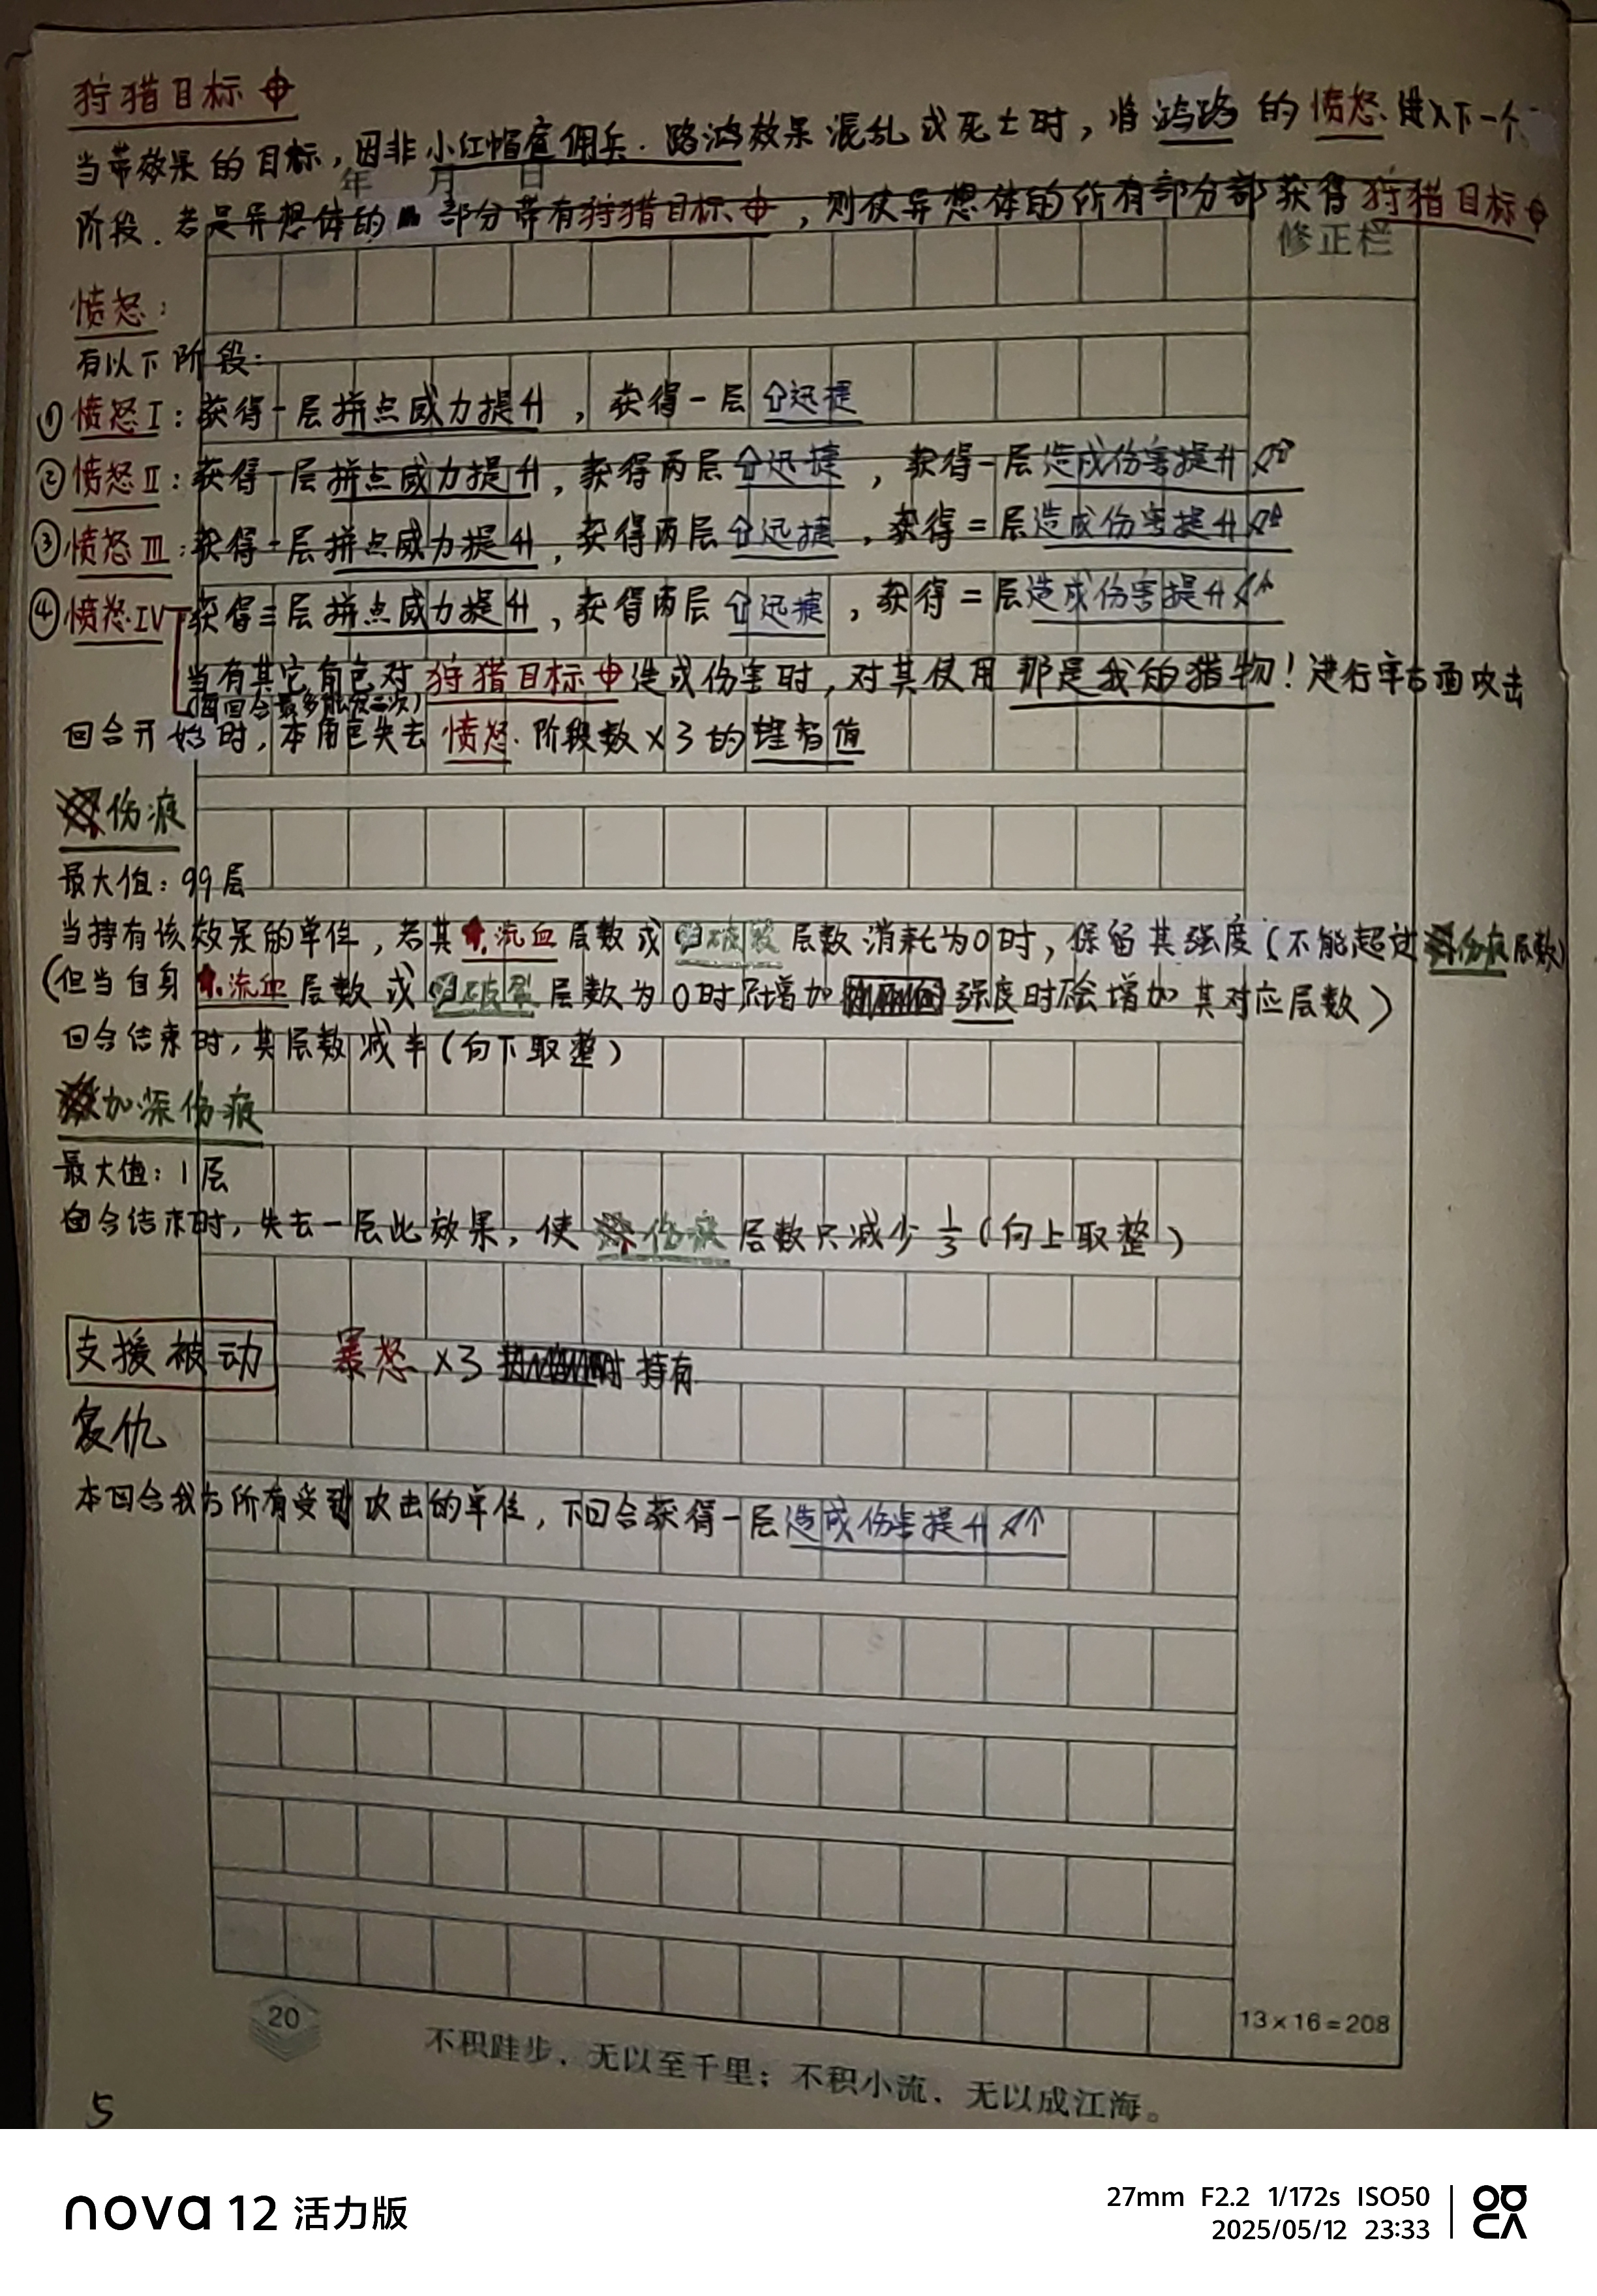 狩猎目标
当带效果的目标，因非小红帽雇佣兵·路鸿效果混乱或死亡时，将鸿路的愤怒进入下一个
年 月 日
阶段.若是异想体的部分带有狩猎目标，则使异想体的所有部分部获得狩猎目标
修正栏
愤怒：
有以下阶段：
①愤怒I：获得一层拼点威力提升，获得一层迅捷
②愤怒II：获得一层拼点威力提升，获得两层迅捷，获得一层造成伤害提升
③愤怒III：获得一层拼点威力提升，获得两层迅捷，获得二层造成伤害提升
④愤怒IV 获得三层拼点威力提升，获得两层迅捷，获得二层造成伤害提升
当有其它角色对狩猎目标造成伤害时，对其使用那是我的猎物！进行单方面攻击
(每回合最多触发二次)
回合开始时，本角色失去愤怒阶段数×3的理智值
伤痕
最大值：99层
当持有该效果的单位，若其流血层数或破裂层数消耗为0时，保留其强度(不能超过伤痕层数)
(但当自身流血层数或破裂层数为0时增加强度时不会增加其对应层数)
回合结束时，其层数减半(向下取整)
加深伤痕
最大值：1层
回合结束时，失去一层此效果，使伤痕层数只减少1/3(向上取整)
支援被动 暴怒×3 持有
复仇
本回合我方所有受到攻击的单位，下回合获得一层造成伤害提升
20
13×16=208
不积跬步，无以至千里；不积小流，无以成江海。
5
nova 12 活力版
27mm F2.2 1/172s ISO50
2025/05/12 23:33